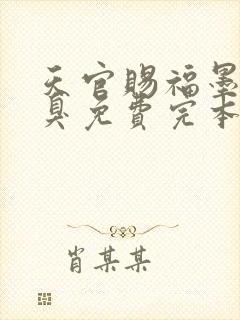 天官赐福墨
臭免费完本
肖某某